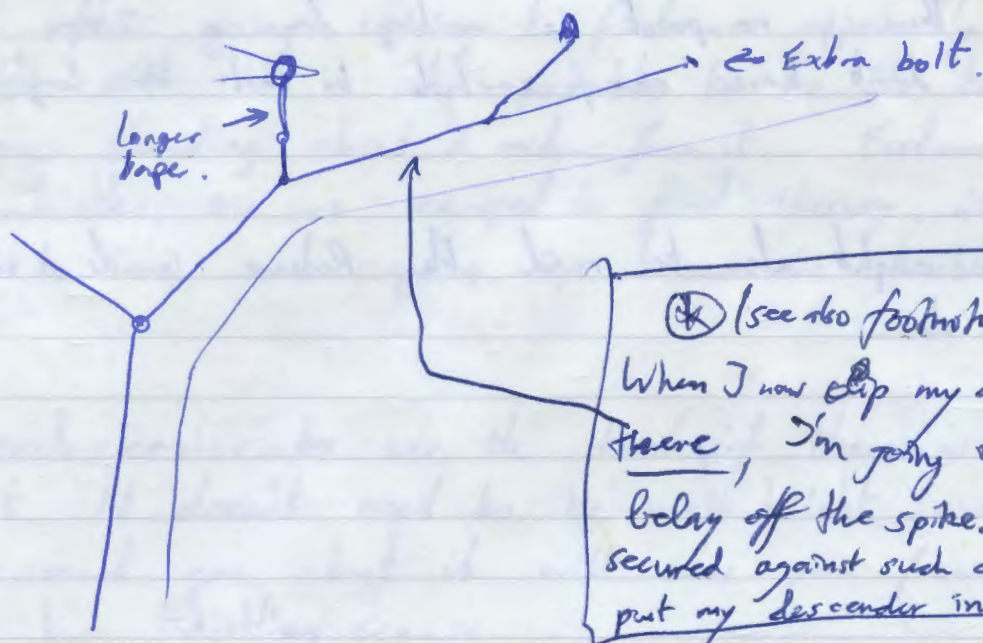 ← Extra bolt.
Longer
tape.
* (see also footnot
When I now clip my
there, I'm going
belay off the spike.
secured against such
put my descender in